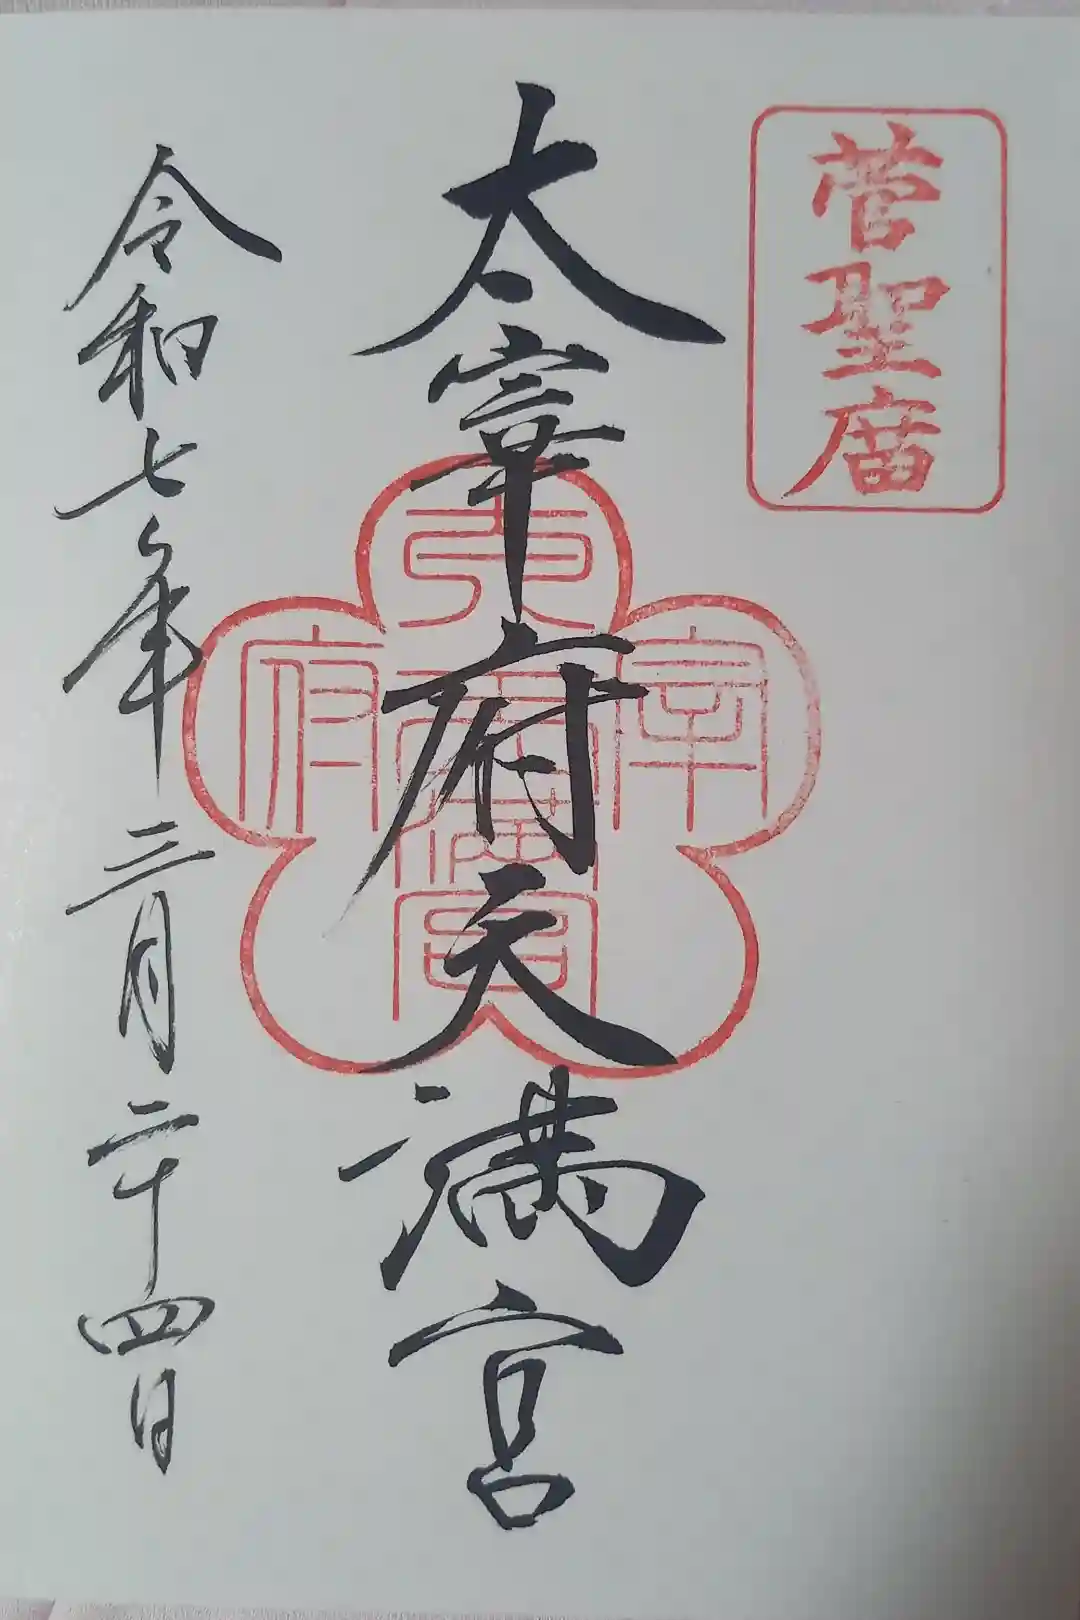 菅聖庿
太宰府天満宮
太宰府天満宮
令和七年三月二十四日